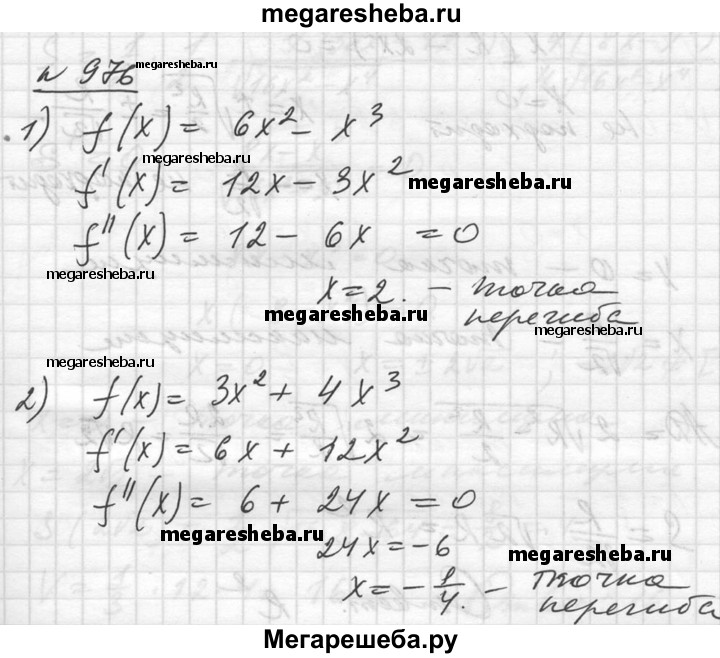 megaresheba.ru
№ 976 megaresheba.ru
1) f(x) = 6x² - x³
megaresheba.ru
f'(x) = 12x - 3x² megaresheba.ru
f''(x) = 12 - 6x = 0
megaresheba.ru
x = 2. - точка
megaresheba.ru перегиба
megaresheba.ru
megaresheba.ru
2) f(x) = 3x² + 4x³
f'(x) = 6x + 12x²
f''(x) = 6 + 24x = 0
megaresheba.ru
24x = -6
megaresheba.ru
x = -1/4. - точка
перегиба
Мегарешеба.ру